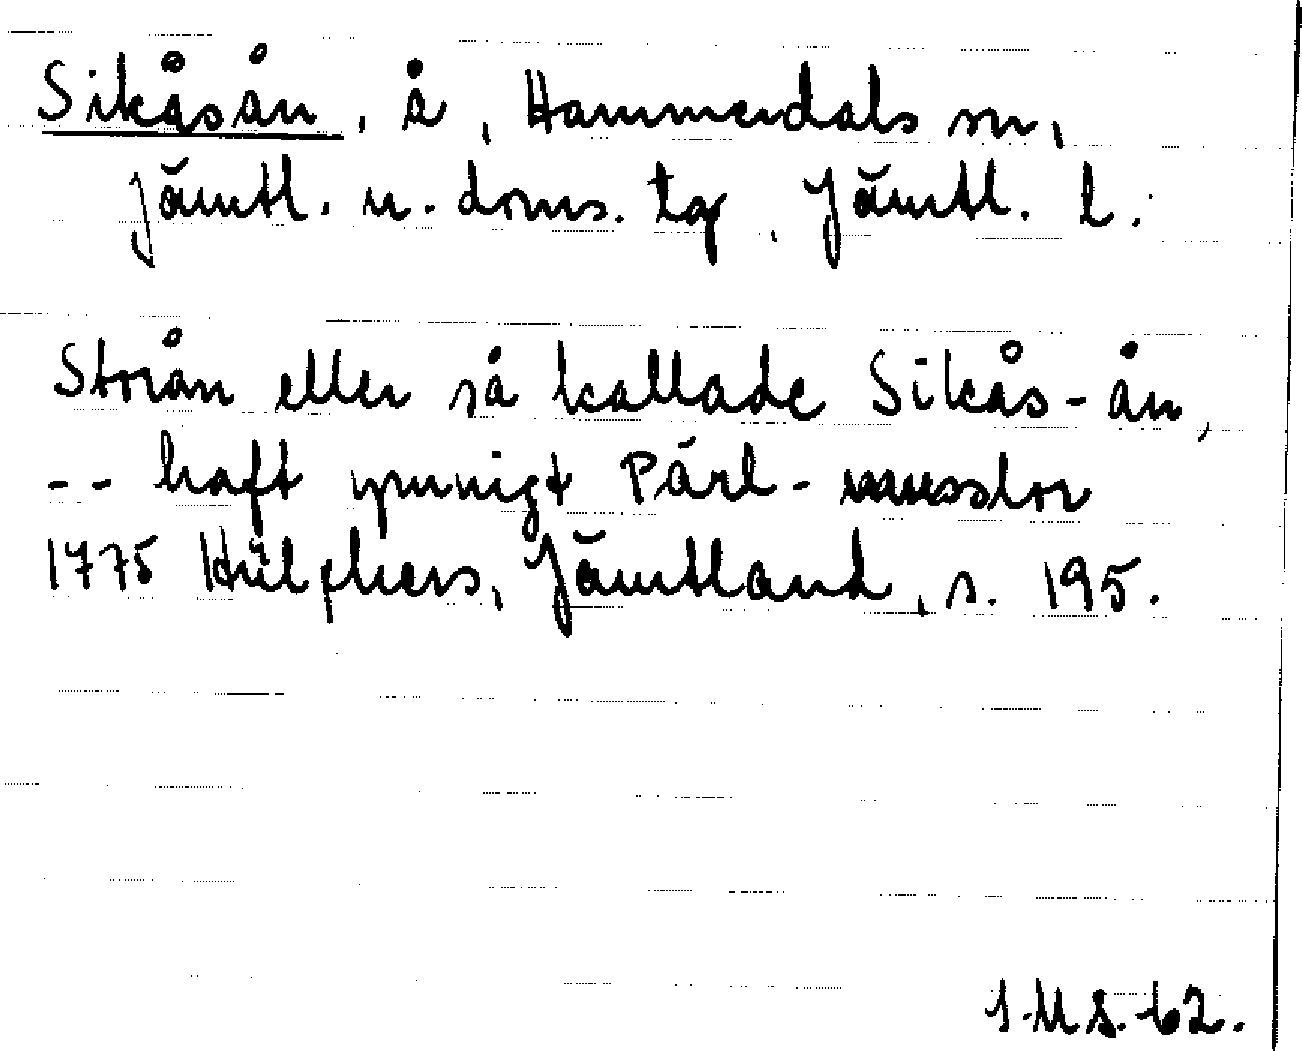 Sikåsån, å, Hammerdals sn,
Jämtl. n. doms. tg, Jämtl. l.
Storån eller så kallade Sikås-ån,
-- haft ymnigt Pärl-musslor
1775 Hülphers, Jämtland, s. 195.
I.M.S.-62.